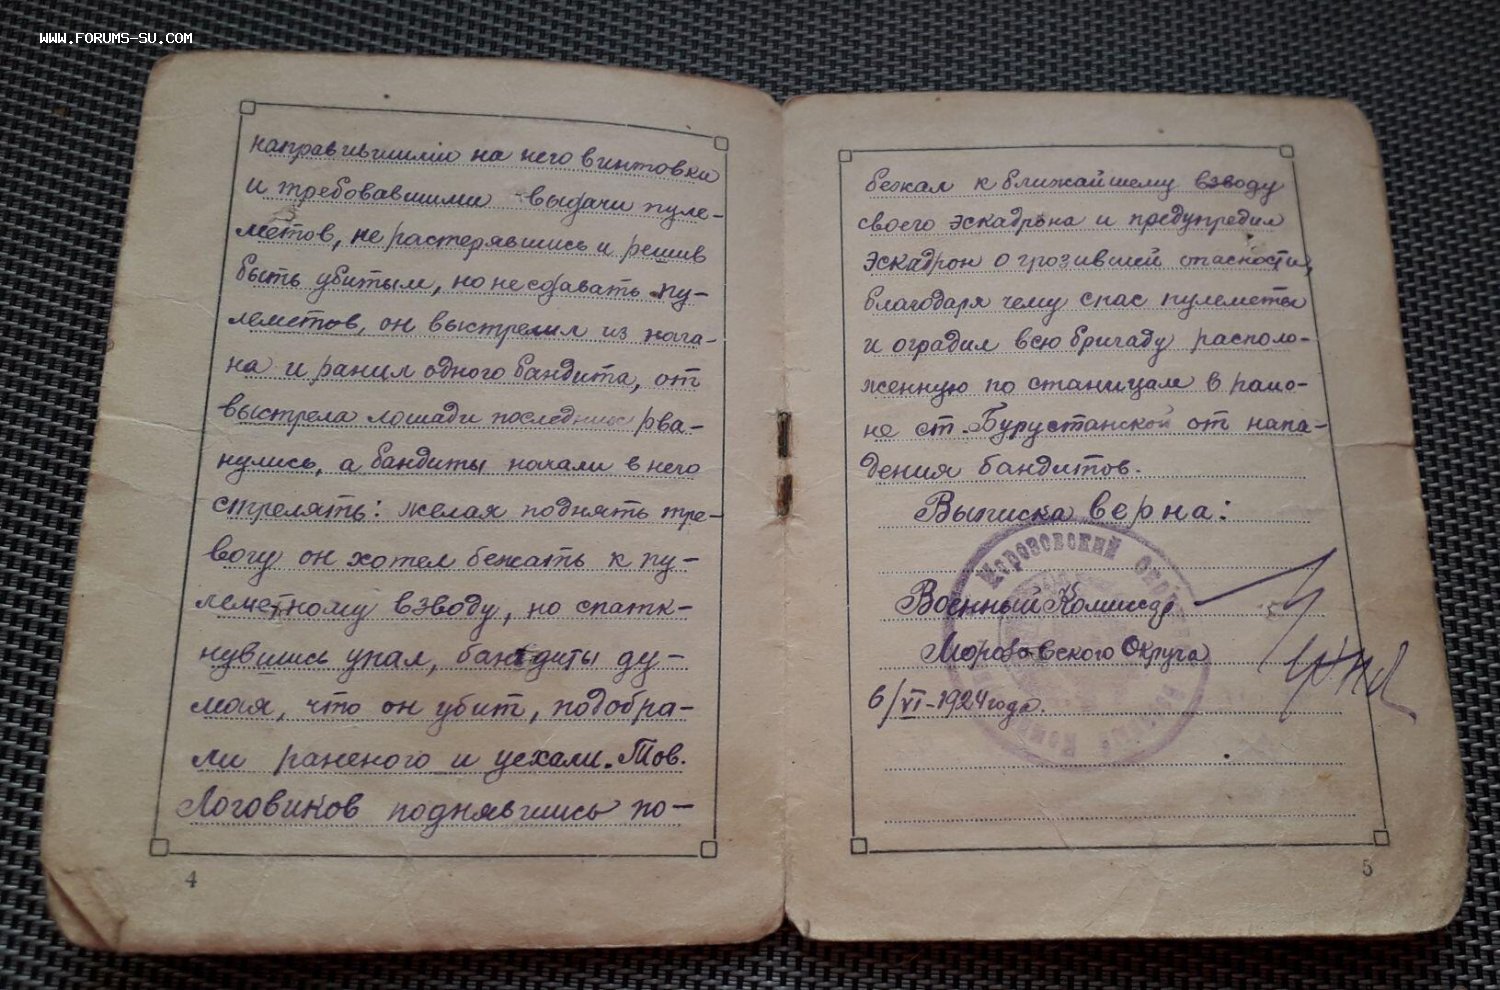 WWW.FORUMS-SU.COM
направившими на него винтовки
и требовавшими выдачи пуле-
метов, не растерявшись и решив
быть убитым, но не сдавать пу-
леметов, он выстрелил из нага-
на и ранил одного бандита, от
выстрела лошади последних рва-
нулись, а бандиты начали в него
стрелять: желая поднять тре-
вогу он хотел бежать к пу-
леметному взводу, но спатк-
нувшись упал, бандиты ду-
мая, что он убит, подобра-
ли раненого и уехали. Тов.
Логовиков поднявшись по-
4
бежал к ближайшему взводу
своего эскадрона и предупредил
эскадрон о грозившей опасности,
благодаря чему спас пулеметы
и оградил всю бригаду располо-
женную по станицам в раио-
не ст. Бурустанской от напа-
дения бандитов.
Выписка верна:
Военный Комиссар
Морозовского Округа
6/VI-1924 года.
Морозовский
5